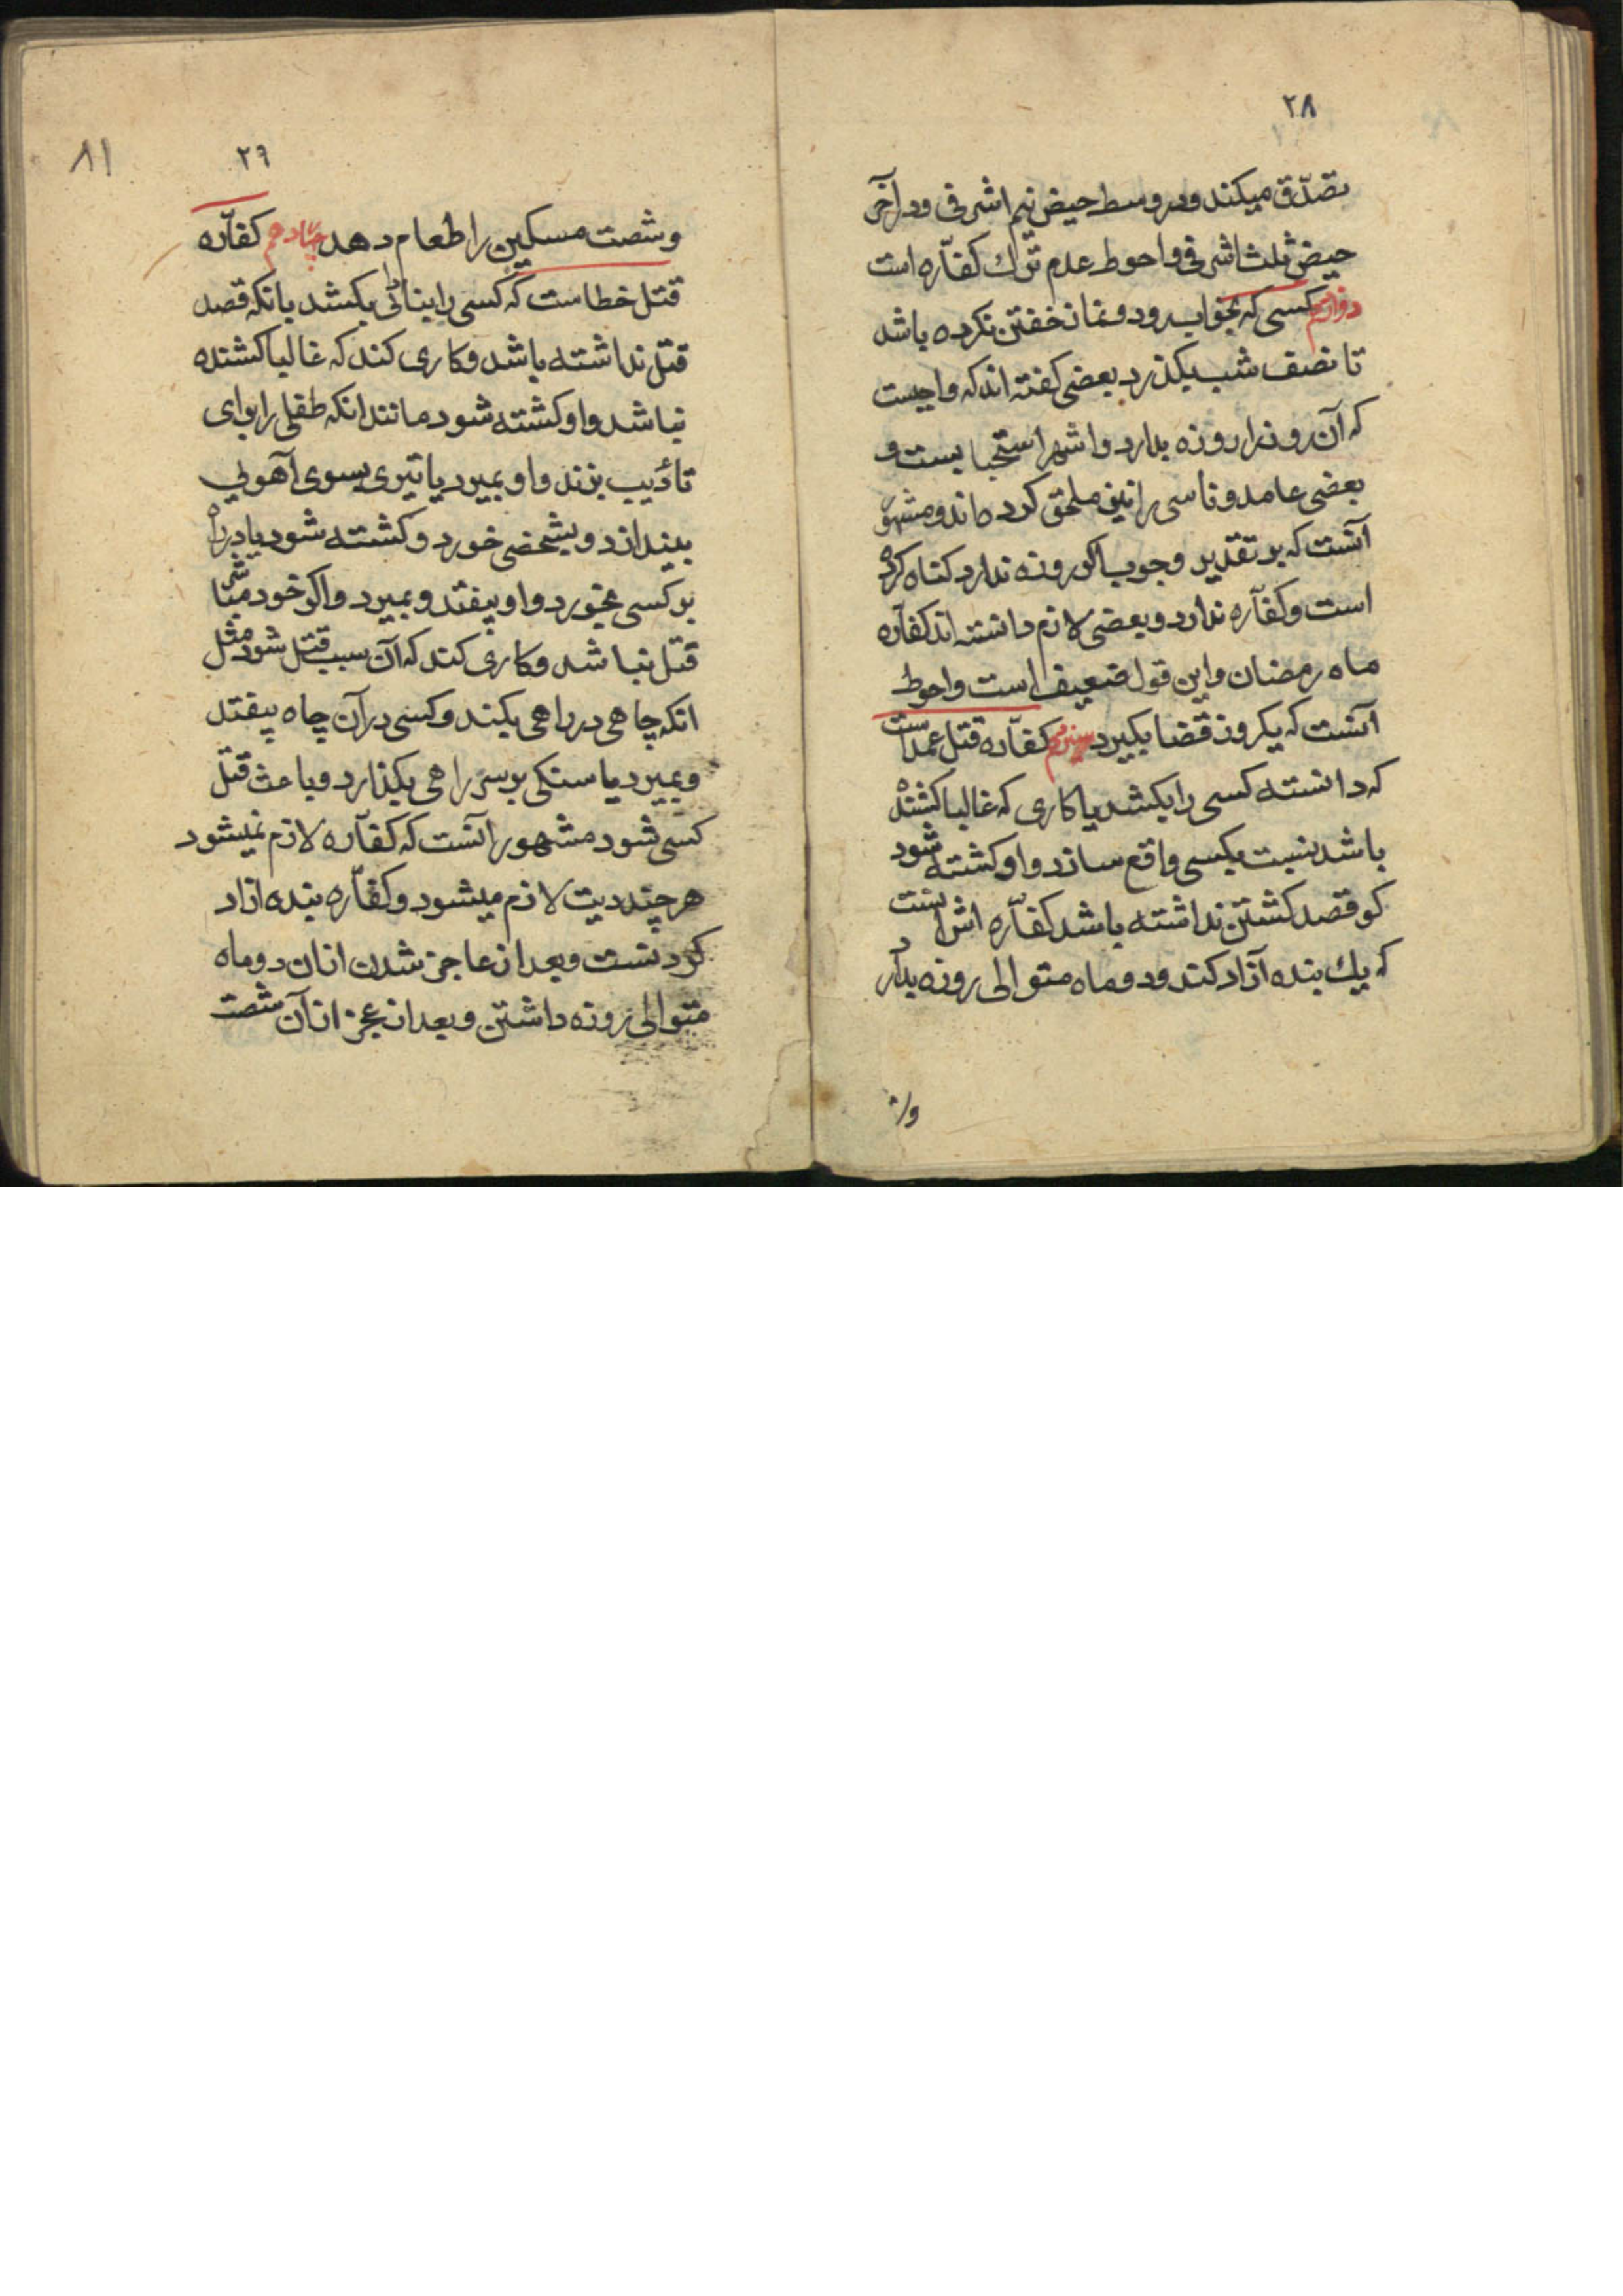 ۲۸
تصدّق میکند ودر وسط حیض نیم اشرفی ودر آخر
حیض ثلث اشرفی واحوط عدم ترك كفّاره است
دوازدهم کسی که بخواب رود ونماز خفتن نکرده باشد
تا نصف شب بکذرد بعضی کفته اند که واجبست
که آن روز را روزه بدارد واشهر استحبا بست و
بعضی عامد وناسی را نیز ملحق کرده اند ومشهور
آنست که بر تقدیر وجوب اکر روزه ندارد کناه کرده
است وکفّاره ندارد وبعضی لازم دانسته اند کفّاره
ماه رمضان واین قول ضعیف است واحوط
آنست که یکروز قضا بکیرد سیزدهم کفّاره قتل عمد است
که دانسته کسی را بکشد یا کاری که غالبا کشنده
باشد نسبت بکسی واقع سازد واو کشته شود
کو قصد کشتن نداشته باشد کفّاره اش اینست
که یك بنده آزاد کند ودو ماه متوالی روزه بدارد
و
۲۹
۸۱
وشصت مسکین را طعام دهد چهاردهم کفّاره
قتل خطاست که کسی را بنادانی بکشد بانکه قصد
قتل نداشته باشد وکاری کند که غالبا کشنده
نباشد واو کشته شود مانند انکه طفلی را برای
تأدیب بزند واو بمیرد یا تیری بسوی آهوئی
بیندازد وبشخصی خورد وکشته شود یا در راه
بر کسی بخورد واو بیفتد وبمیرد واکر خود مباشر
قتل نباشد وکاری کند که آن سبب قتل شود مثل
انکه چاهی در راهی بکند وکسی در آن چاه بیفتد
وبمیرد یا سنکی بر سر راهی بکذارد وباعث قتل
کسی شود مشهور آنست که کفّاره لازم نمیشود
هر چند دیت لازم میشود وکفّاره بنده ازاد
کردنست وبعد از عاجز شدن ازان دو ماه
متوالی روزه داشتن وبعد از عجز از آن شصت